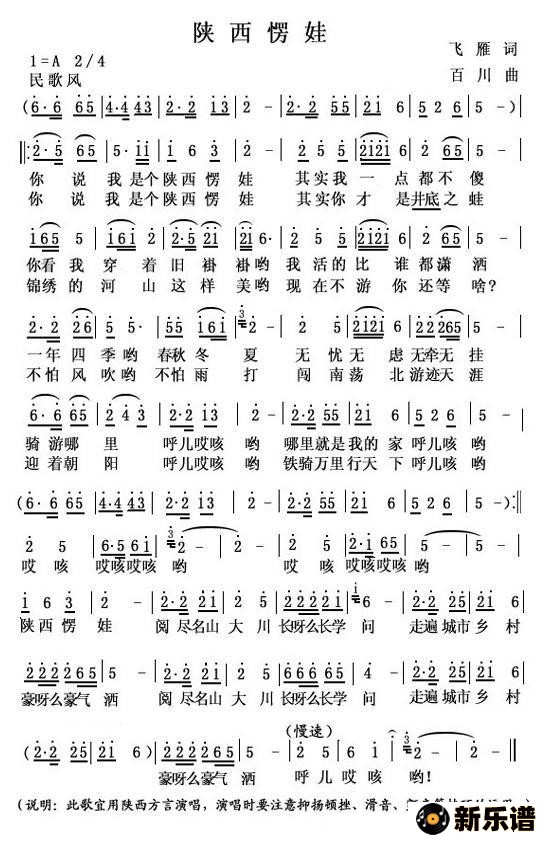 陕西愣娃
1=A 2/4
飞雁词
民歌风
百川曲
(6·6 65 | 4·4 43 | 2·2 13 | 2 - | 2·2 55 | 21 6 | 5 2 6 | 5 - )
2·5 65 | 5·11 | 1 6 3 | 2 - | 2 5 5 | 2121 6 | 2 6 | 5 -
你说我是个陕西愣娃 其实我一点都不傻
你说我是个陕西愣娃 其实你才是井底之蛙
165 5 | 161 2 | 2·5 221 | 21 6· | 2 5 5 | 2121 6 | 5 2 6 | 5 -
你看我穿着旧褂褂哟我活的比谁都潇洒
锦绣的河山这样美哟现在不游你还等啥?
2·2 26 | 5 5· | 55 161 | 3 2 - | 2·2 5 | 2121 6 | 22265 | 5 -
一年四季哟春秋冬夏 无忧无虑无牵无挂
不怕风吹哟不怕雨打 闯南荡北游迹天涯
6·6 65 | 2 4 3 | 2·2 13 | 2 - | 2·2 55 | 21 6 | 5 2 6 | 5 -
骑游哪里 呼儿哎咳哟 哪里就是我的家呼儿咳哟
迎着朝阳 呼儿哎咳哟 铁骑万里行天下呼儿咳哟
(6·6 65 | 4·4 43 | 2·2 13 | 2 - | 2·2 55 | 21 6 | 5 2 6 | 5 - ):
2 5 | 6·5 61 | 3 2 - | 2 - | 2 5 | 2·1 65 | 5 - | 5 -
哎咳哎咳哎咳哟 哎咳哎咳哎咳哟
1 6 3 | 2 - | 2·2 21 | 2 5 | 2222 21 | 6 - | 2·2 55 | 21 6
陕西愣娃 阅尽名山大川长呀么长学问 走遍城市乡村
222 265 | 5 - | 2·2 21 | 2 5 | 2222 21 | 6 - | 2·2 55 | 21 6
豪呀么豪气洒 阅尽名山大川长呀么长学问 走遍城市乡村
(慢速)
(2·2 55 | 21 6) | 2222 265 | 5 - | 2 5 | 1 2 | 3 2 - | 2 -
豪呀么豪气洒 呼儿哎咳哟!
(说明:此歌宜用陕西方言演唱,演唱时要注意抑扬顿挫、滑音、
新乐谱